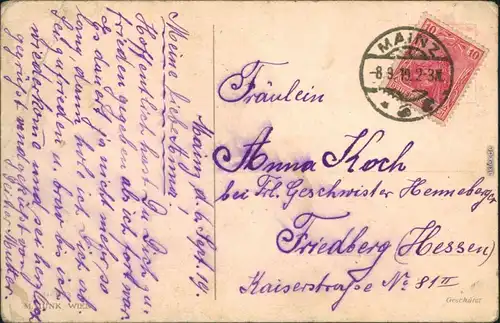 Mainz, d. 6. Sept. 19.
Meine liebe Anna.
Hoffentlich hast Du Dich zu-
frieden gegeben als ich fort war.
Es dauert ja nicht mehr so
lang, dann hole ich Dich ab.
Sei zufrieden u. brav bis ich
wiederkomme und sei herzlich
gegrüsst und geküsst von
Mutter.
MAINZ
-8.9.19. 2-3N.
10
10
Fräulein
Anna Koch
bei Frl. Geschwister Henneberger
Friedberg (Hessen)
Kaiserstraße No 81 II
M. MUNK WIEN
Geschützt